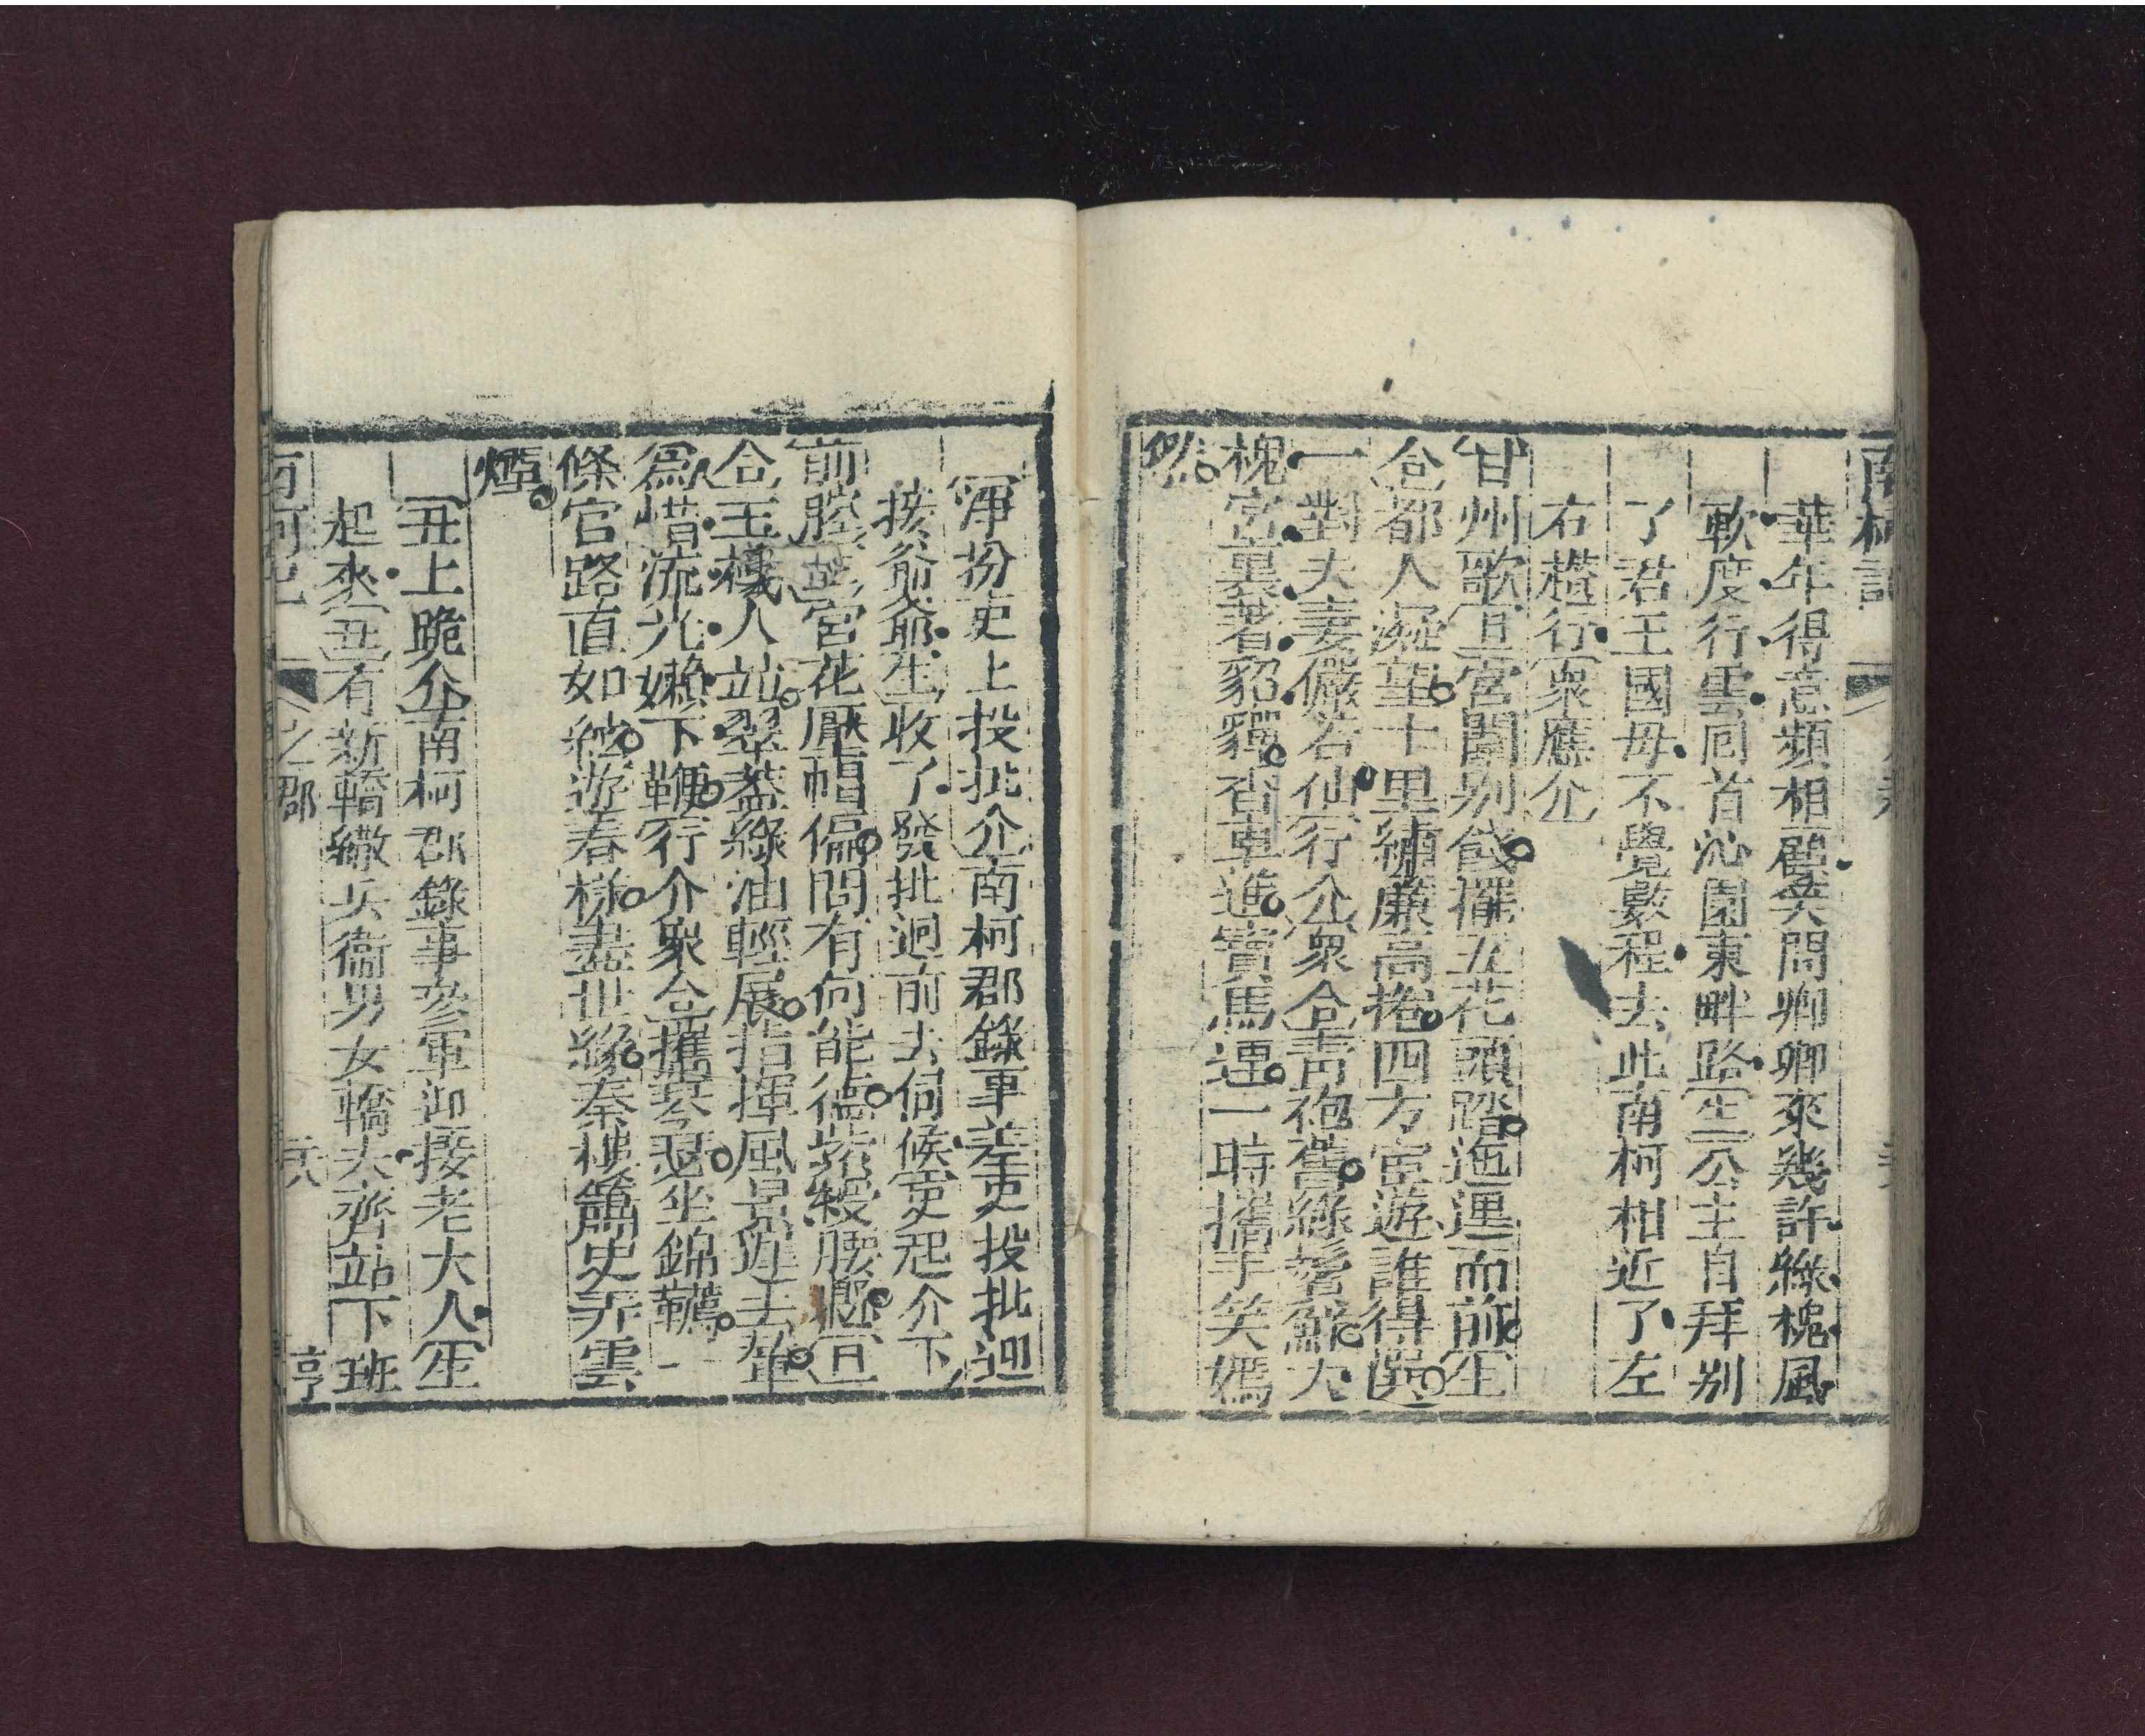 南柯記
華年得意頻相顧笑問卿卿來幾許綠槐風
軟度行雲囘首沁園東畔路生公主自拜别
了君王國母不覺數程去此南柯相近了左
右趲行衆應介
甘州歌旦宮闈别餞擺五花頭踏迤邐而前生
合都人凝望十里繡簾高捲四方宦遊誰得選
一對夫妻儼若仙行介衆合青袍舊綠鬢鮮人
槐宮裏著貂蟬香車進寶馬連一時攜手笑嫣
然
淨扮吏上投批介南柯郡錄事差吏投批迎
接爺爺生收了發批迴前去伺候吏起介下
前腔生宮花壓帽偏問有何能德紫綬腰懸旦
合玉樓人站翠蓋綠油輕展指揮風景遲去輦
爲惜流光嬾下鞭行介衆合攜琴瑟坐錦韀一
條官路直如絃遊春樣盡世緣秦樓簫史弄雲
煙
丑上跪介南柯郡錄事參軍迎接老大人生
起來丑有新轎繖兵衞男女轎夫齊站下班
南柯記 之郡 亨